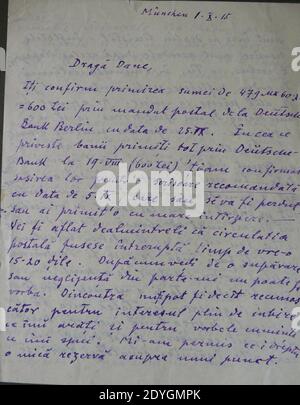 München 1.X.15
Dragă Dane,
Îți confirm primirea sumei de 479 M
= 600 lei prin mandat postal de la Deutsche
Bank Berlin cu data de 25.IX. În ceea ce
privește banii primiti tot prin Deutsche-
Bank la 19-VIII (600 lei) ți-am confirmat
sosirea lor scrisoare recomandată
cu data de 5. să vă fi perdut
sau ai primit-o cu mare întirziere.
Vei fi aflat dealmintreli că circulatia
postală fusese intreruptă timp de vre-o
15-20 zile. După cum vezi de o supărare
sau negligență din parte-mi nu poate fi
vorba. Dincontra nu pot fi decît recunos-
cător pentru interesul plin de iubire
ce îmi arăți și pentru vorbele
ce îmi spui. Mi-am permis
o mică rezervă asupra unui punct.
a
alamy
Image ID: 2DYGMPK
www.alamy.com